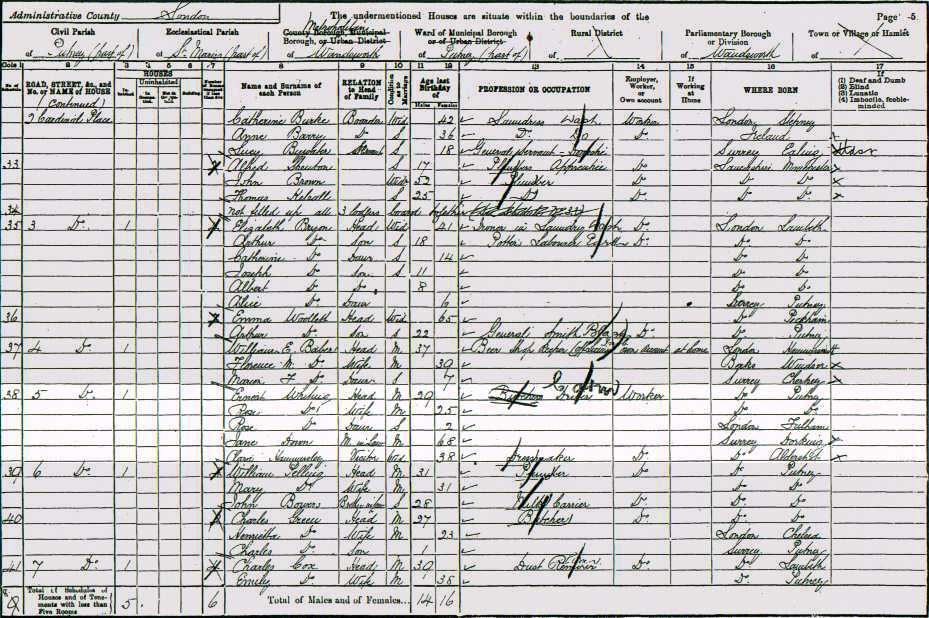 Administrative County London The undermentioned Houses are situate within the boundaries of the Page 5
Civil Parish Ecclesiastical Parish Metropolitan County Borough, Municipal Borough, or Urban District Ward of Municipal Borough or of Urban District Rural District Parliamentary Borough or Division Town or Village or Hamlet
of Putney (part of) of St Marys (part of) of Wandsworth of Putney (part of) of of Wandsworth of
Cols 1 2 3 4 5 6 7 8 9 10 11 12 13 14 15 16 17
No. of Schedule ROAD, STREET, &c., and No. or NAME of HOUSE HOUSES Inhabited Uninhabited Building Name and Surname of each Person RELATION to Head of Family Condition as to Marriage Age last Birthday of Males Females PROFESSION OR OCCUPATION Employer, Worker, or Own account If Working at Home WHERE BORN If (1) Deaf and Dumb (2) Blind (3) Lunatic (4) Imbecile, feeble-minded
(Continued)
2 Cardinal Place Catherine Burke Boarder Wid 42 Laundress Wash Worker London Stepney
Anne Barry Do S 36 Do Do Do Ireland
Lucy S 18 General Servant Domestic Surrey Ealing
33 Alfred S 17 Plumbers Apprentice Do Lancashire Manchester
John Brown Widr 52 Plumber Do Do Do
Thomas S 25 Do Do Do Do
34 not filled up all 3 lodgers board together
35 3 Do 1 Elizabeth Bryon Head Wid 41 Ironer in Laundry Wash Do London Lambeth
Arthur Do Son S 18 Potters Labourer Do Do Do
Catherine Do Daur S 14 Do Do
Joseph Do Son S 11 Do Do
Albert Do Do 8 Do Do
Alice Do Daur 6 Surrey Putney
36 Emma Head Wid 65 Do Peckham
Arthur Do Son S 22 General Smith Do Do Putney
37 4 Do 1 William E. Baker Head M 37 Beer Shop Keeper own account at home London
Florence M. Do Wife M 39 Berks Windsor
Marion F. Do Daur S 7 Surrey Chertsey
38 5 Do 1 Ernest Head M 29 Worker Do Putney
Rose Do Wife M 25 Do Do
Rose Do Daur S 2 London Fulham
Jane M. in Law M 68 Surrey Dorking
Clara Visitor Wid 38 Dressmaker Do Do
39 6 Do 1 William Head M 31 Plumber Do Do Putney
Mary Do Wife M 31 Do Do
John Bowers S 28 Milk Carrier Do Do Do
40 Charles Green Head M 27 Butcher Do Do Do
Henrietta Do Wife M 23 London Chelsea
Charles Do Son 1 Surrey Putney
41 7 Do 1 Charles Cox Head M 39 Dust Do Do Lambeth
Emily Do Wife M 38 Do Putney
9 Total of Schedules of Houses and of Tenements with less than Five Rooms 5 6 Total of Males and of Females... 14 16